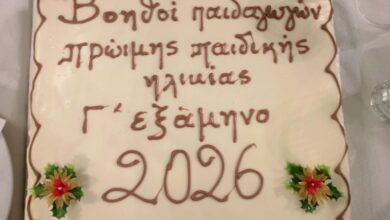 Βοηθοί παιδαγωγών
πρώιμης παιδικής
ηλικίας
Γ' εξάμηνο
2026